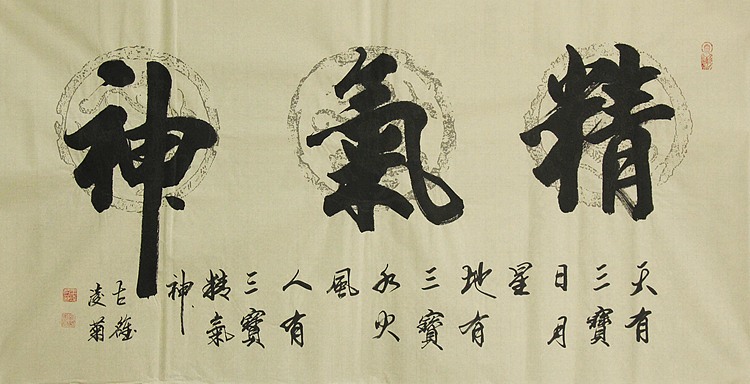 精氣神
天有
三寶
日月
星
地有
三寶
水火
風
人有
三寶
精氣
神
古
凌菊